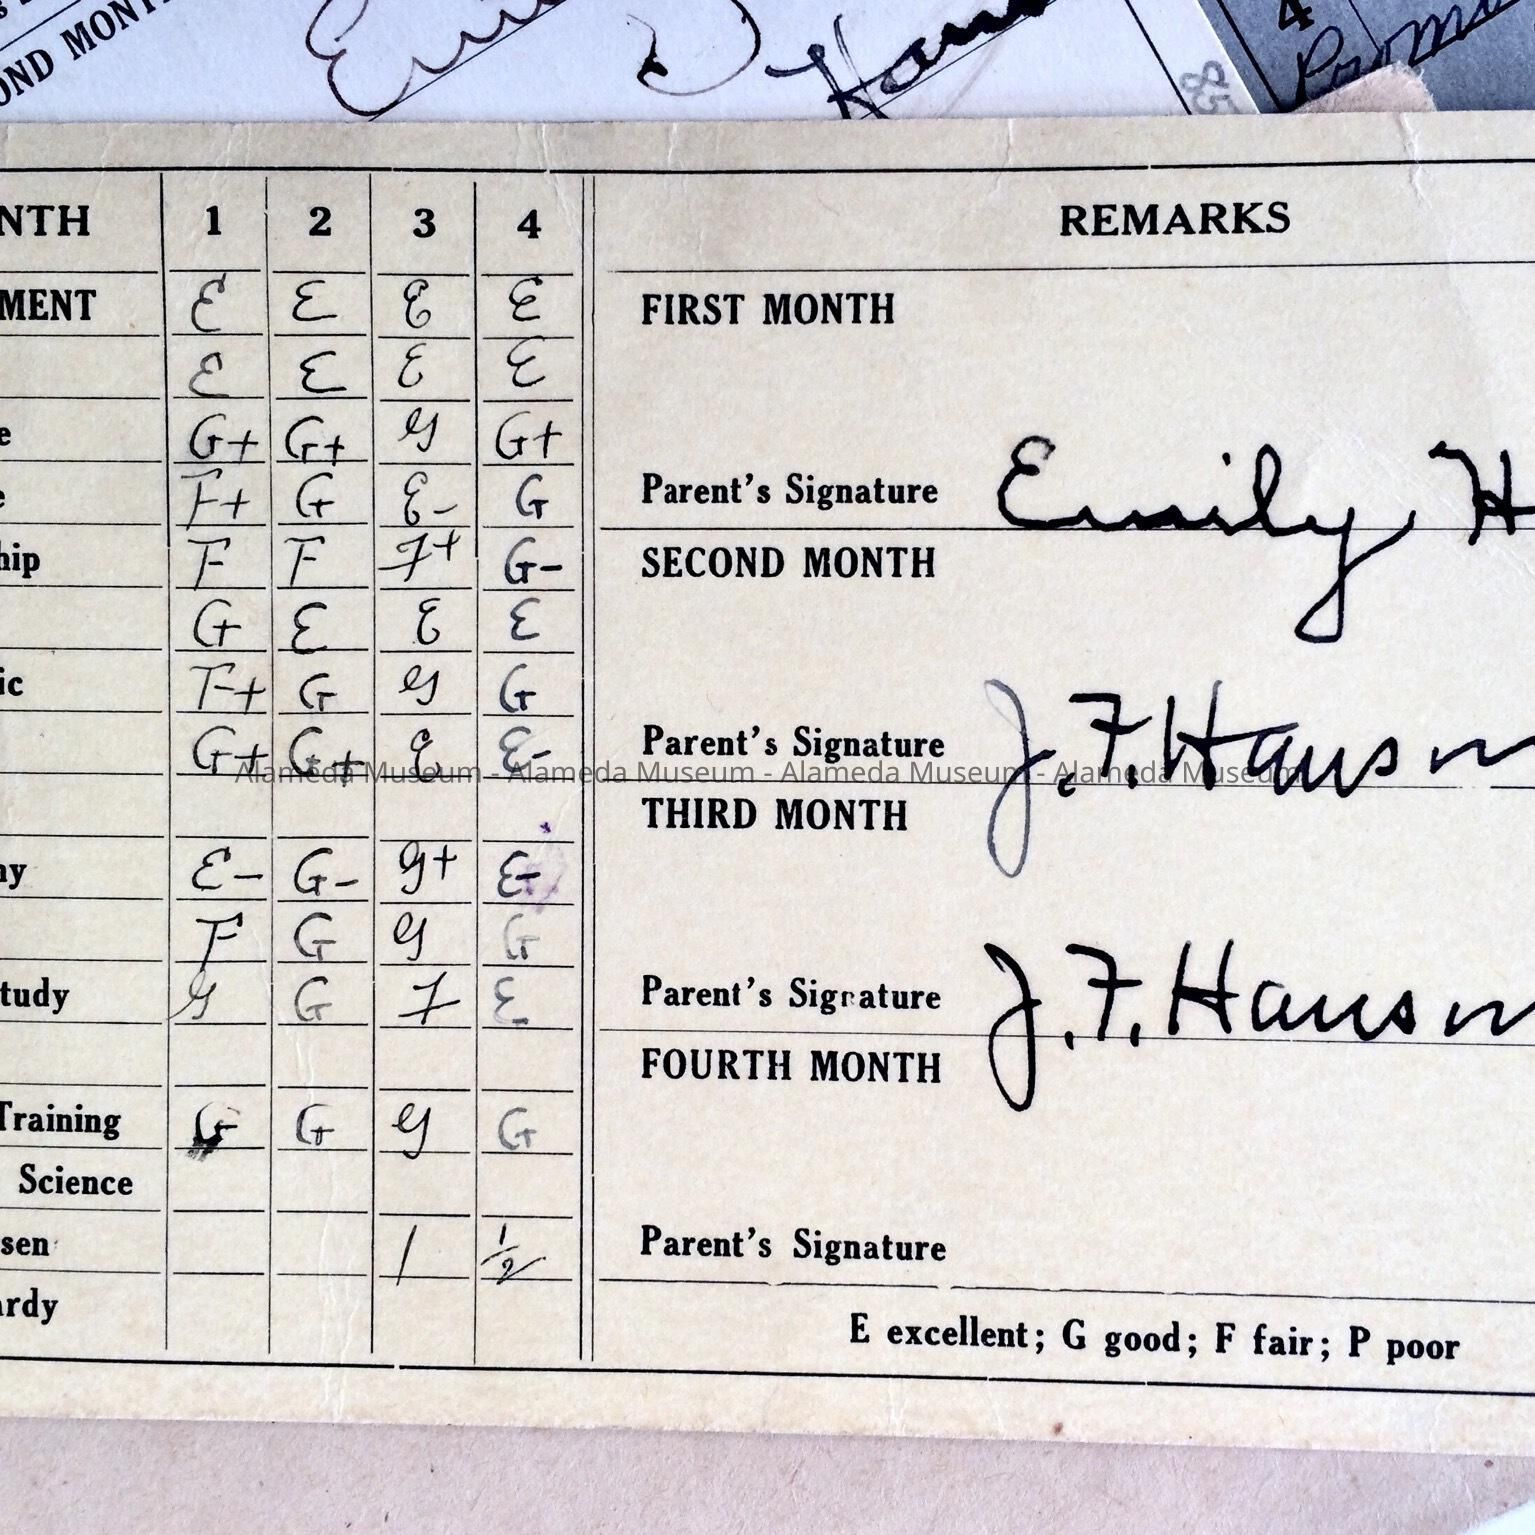 OND MONTH
4
85
NTH 1 2 3 4 REMARKS
MENT E E E E FIRST MONTH
E E E E
e G+ G+ G G+
e F+ G E- G Parent's Signature Emily H
hip F F F+ G- SECOND MONTH
G E E E
ic F+ G G G
G+ G+ E E- Parent's Signature J. F. Hanson
Alameda Museum - Alameda Museum - Alameda Museum - Alameda Museum
THIRD MONTH
hy E- G- G+ E-
F G G G
tudy G G F E Parent's Signature J. F. Hanson
FOURTH MONTH
Training G G G G
Science
sen 1 1/2 Parent's Signature
ardy
E excellent; G good; F fair; P poor